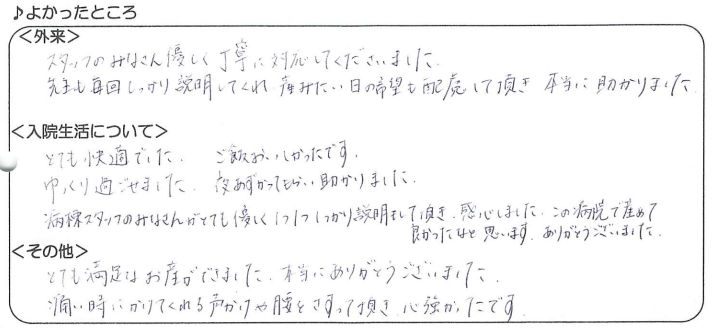 ♪よかったところ
<外来>
スタッフのみなさん優しく丁寧に対応してくださいました。
先生も毎回しっかり説明してくれ、産みたい日の希望も配慮して頂き 本当に助かりました
<入院生活について>
とても快適でした。 ご飯おいしかったです。
ゆっくり過ごせました。 夜あずかってもらい助かりました。
病棟スタッフのみなさんがとても優しく1つ1つしっかり説明をして頂き、感心しました。この病院で産めて
良かったなと思います。ありがとうございました。
<その他>
とても満足なお産ができました。本当にありがとうございました。
痛い時にかけてくれる声かけや腰をさすって頂き、心強かったです。